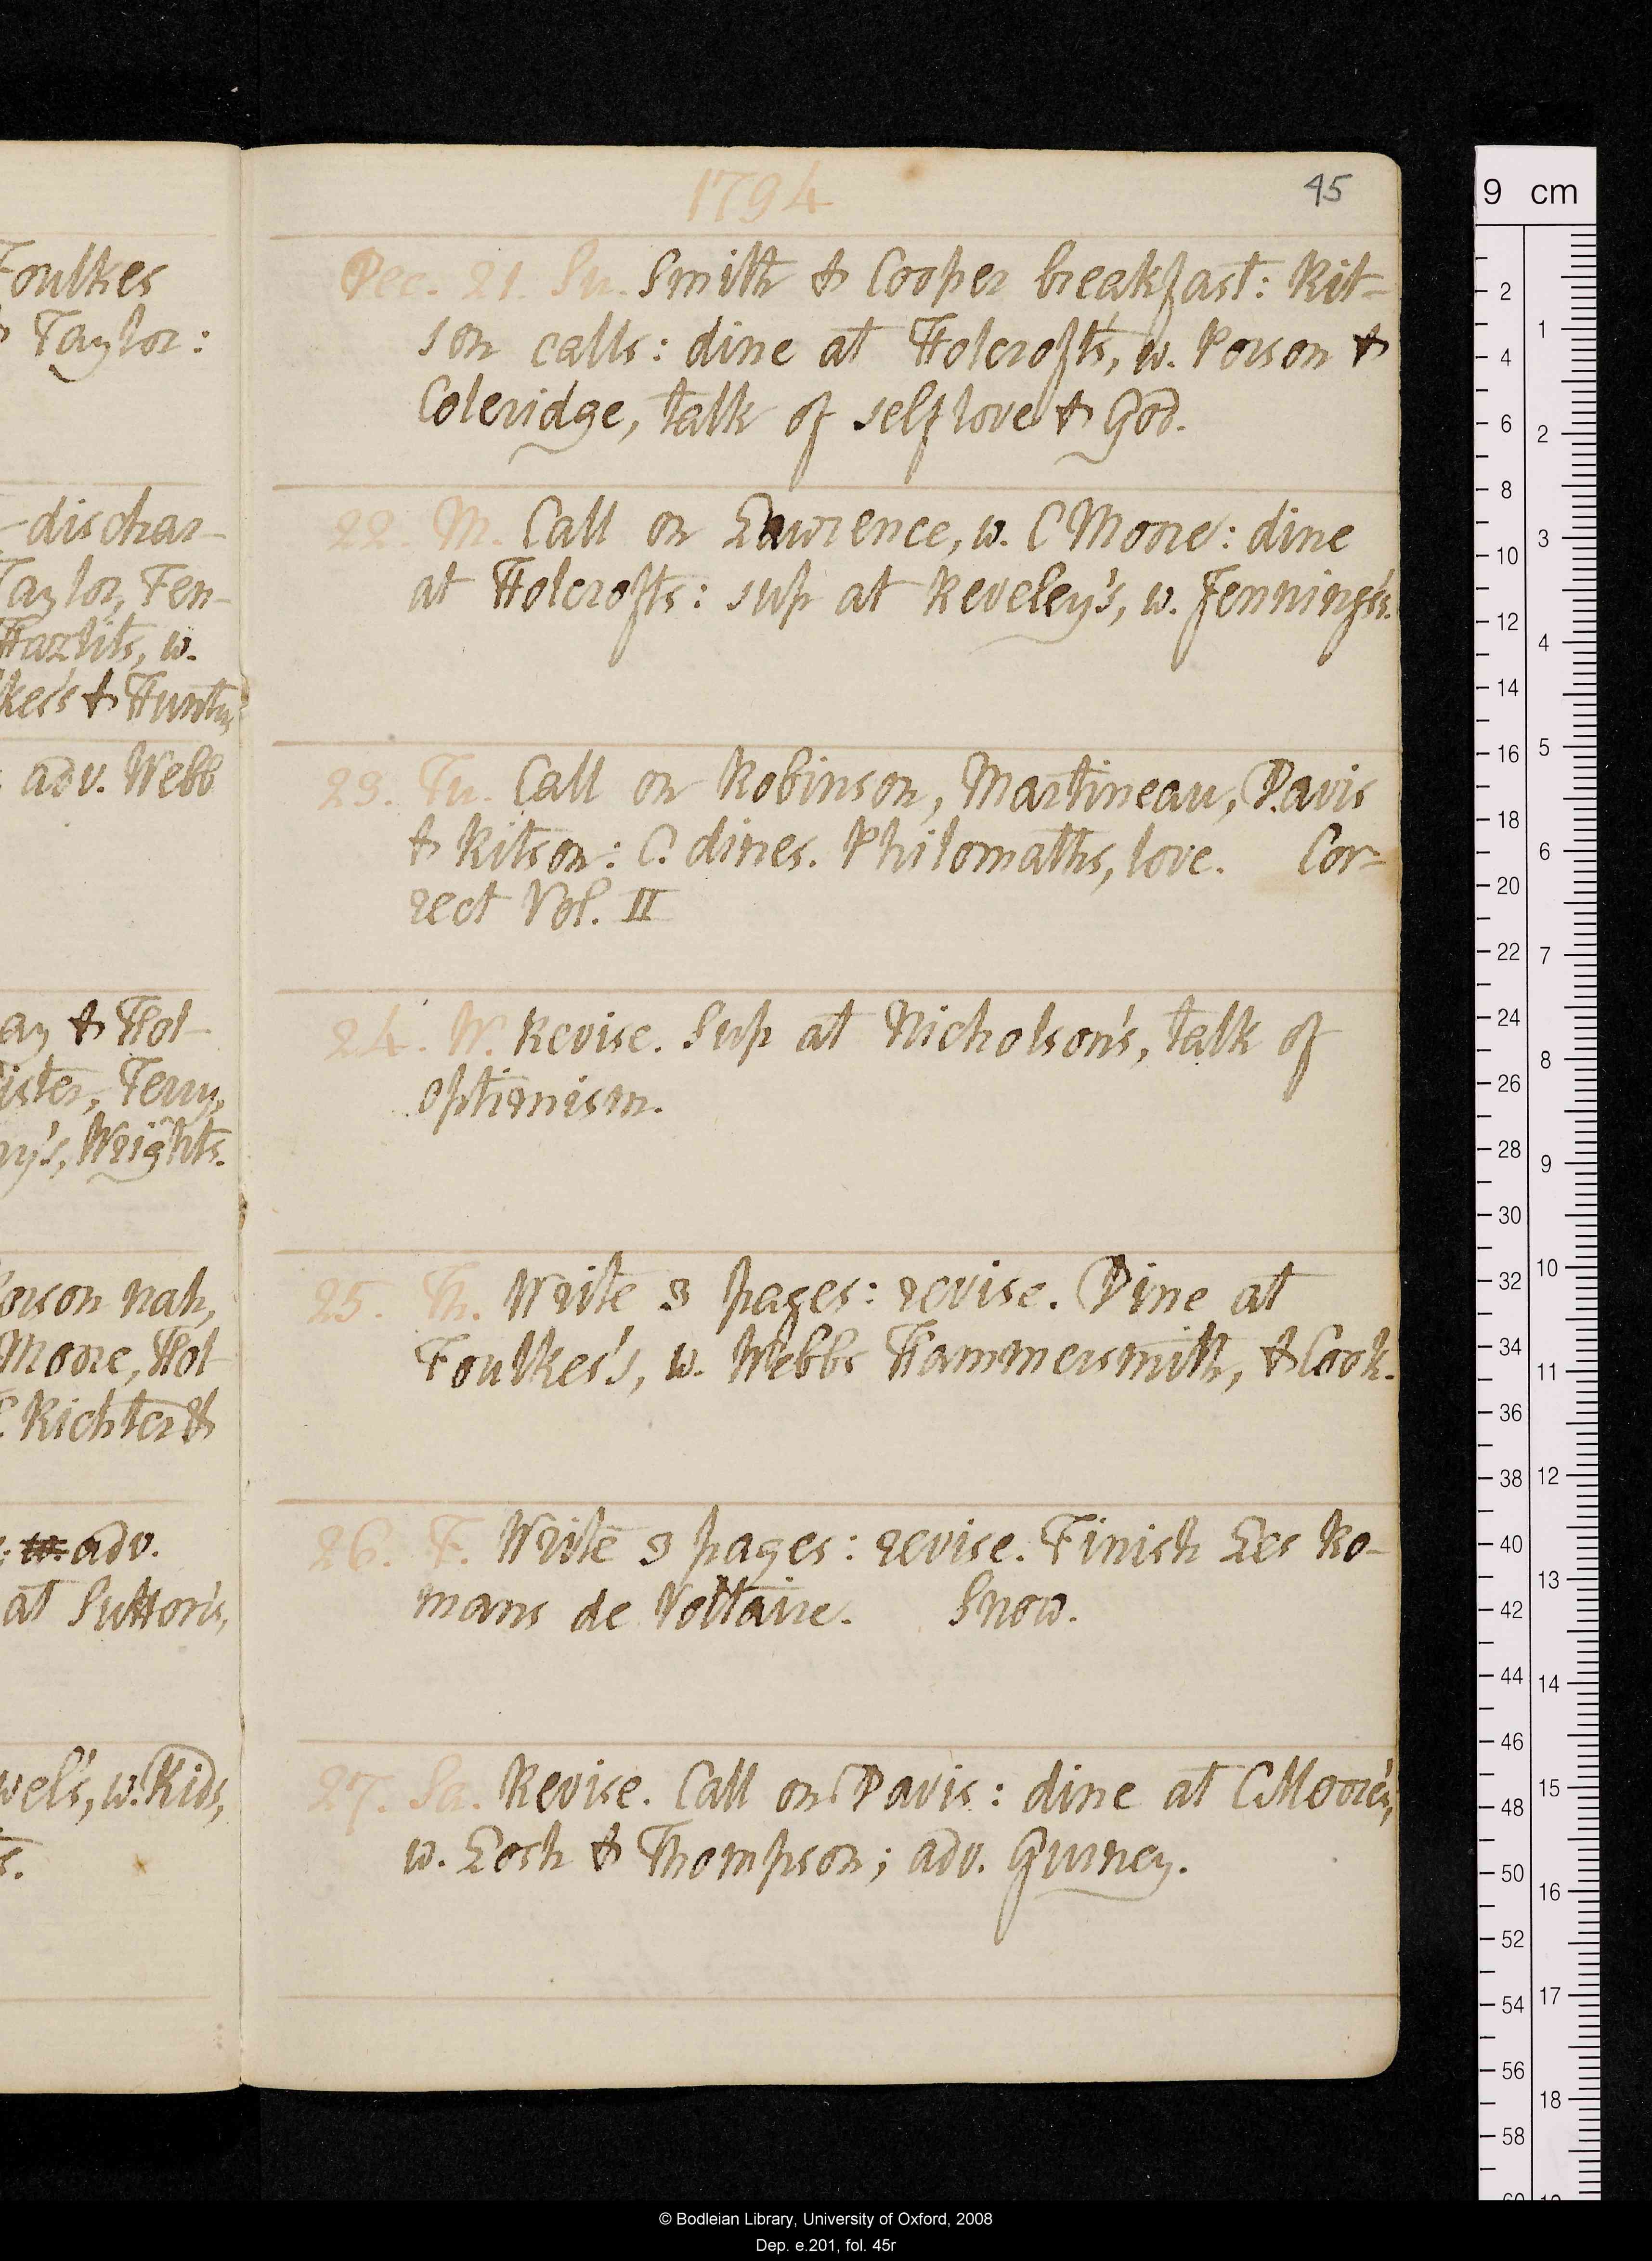 Foulkes
Taylor:
-dischar-
Taylor, Fen-
Hazlits, w.
kes's & Hunter,
adv. Webb
ay & Hol-
ister, Terry,
ry's, Wrights.
Porson nah,
Moore, Hol-
Richter &
adv.
at Sutton's,
wel's, w. Kids,
1794
45
Dec. 21. Su. Smith & Cooper breakfast: Rit-
son calls: dine at Holcroft's, w. Porson &
Coleridge, talk of self love & God.
22. M. Call on Lawrence, w. C Moore: dine
at Holcrofts: sup at Reveley's, w. Jennings's.
23. Tu. Call on Robinson, Martineau, Davis
& Ritson: C. dines. Philomaths, love. Cor-
rect Vol. II
24. W. Revise. Sup at Nicholson's, talk of
optimism.
25. Th. Write 3 pages: revise. Dine at
Foulkes's, w. Webbs Hammersmith, & Cook.
26. F. Write 3 pages: revise. Finish Les Ro-
mans de Voltaire. Snow.
27. Sa. Revise. Call on Davis: dine at C Moore's,
w. Losh & Thompson; adv. Gurney.
9 cm
2
4
6
8
10
12
14
16
18
20
22
24
26
28
30
32
34
36
38
40
42
44
46
48
50
52
54
56
58
1
2
3
4
5
6
7
8
9
10
11
12
13
14
15
16
17
18
© Bodleian Library, University of Oxford, 2008
Dep. e.201, fol. 45r